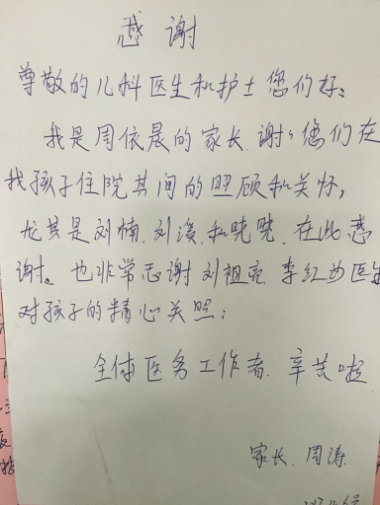 感谢
尊敬的儿科医生和护士您们好:
我是周依晨的家长.谢谢您们在
我孩子住院其间的照顾和关怀,
尤其是刘楠.刘溪.和晓晓.在此感
谢。也非常感谢刘祖亮.李红 医生
对孩子的精心关照:
全体医务工作者.辛苦啦
家长.周涛.